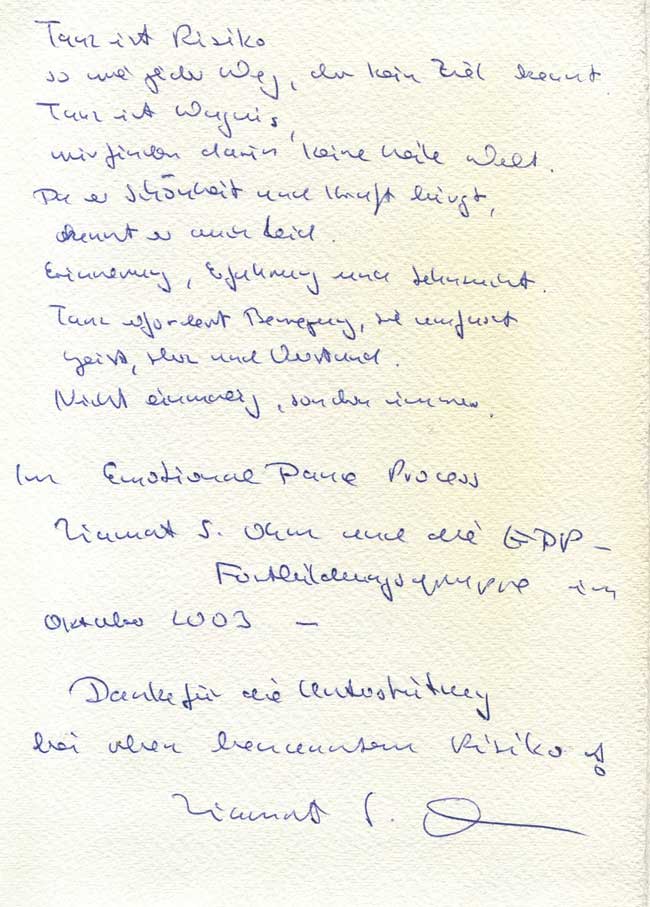 Tanz ist Risiko
so wie jeder Weg, der kein Ziel kennt.
Tanz ist Wagnis,
wir finden darin keine heile Welt.
Da er Schönheit und Kraft birgt,
kennt er auch Leid.
Erinnerung, Erfahrung und Sehnsucht.
Tanz erfordert Bewegung, sie umfasst
Geist, Herz und Verstand.
Nicht einmalig, sondern immer.
Im Emotional Dance Process
S. Ohm und die EDP-
Fortbildungsgruppe im
Oktober 2003 –
Danke für die Unterstützung
bei oben benanntem Risiko!
S.